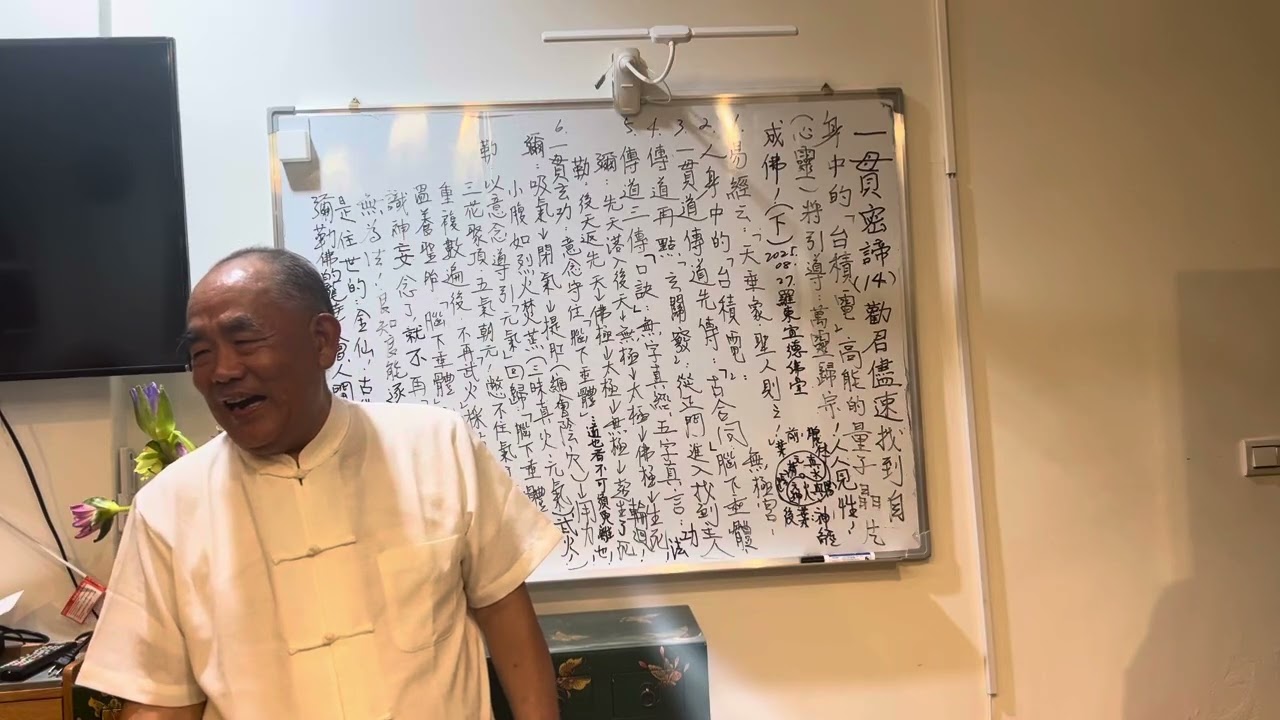 一貫密諦(14)勸君儘速找到自
身中的「台積電」高能的量子晶片
(心靈)將引導:萬靈歸宗!人人見性!
成佛!(下)2025.08.27.羅東宣德佛堂
1.易經云:「天垂象聖人則之!」
2.人身中的「台積電」:
無極宮!
3.一貫道傳道先傳:「古合同」腦下垂體
4.傳道再點:「玄關竅」從正門進入找到主人
5.傳道三傳「口訣」:無字真經.五字真言.功法
彌:先天落入後天↓無極↓太極↓佛極↓生死輪迴
勒:後天返先天↓佛極↓太極↓無極↓
6.一貫玄功:意念守住「腦下垂體」
道也者不可須臾離也!
彌 吸氣↓閉氣↓提肛(縮會陰穴)↓用力!
小腹如烈火焚薰(三昧真火.元氣武火)
勒:以意念導引「元氣」回歸「腦下垂體
三花聚頂.五氣朝元!憋不住氣
重複數遍後!不再武火採
溫養聖胎「腦下垂體
識神妄念了就不再
無為法!
是住世的:金仙.古
彌勒佛的